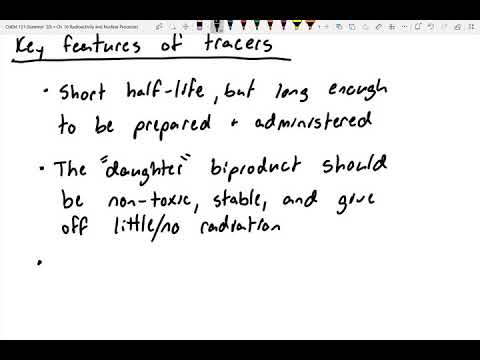 CHEM 121 (Summer '20) • Ch. 10 Radioactivity and Nuclear Processes
Key features of tracers
• Short half-life, but long enough
to be prepared + administered
• The "daughter" biproduct should
be non-toxic, stable, and give
off little/no radiation
•